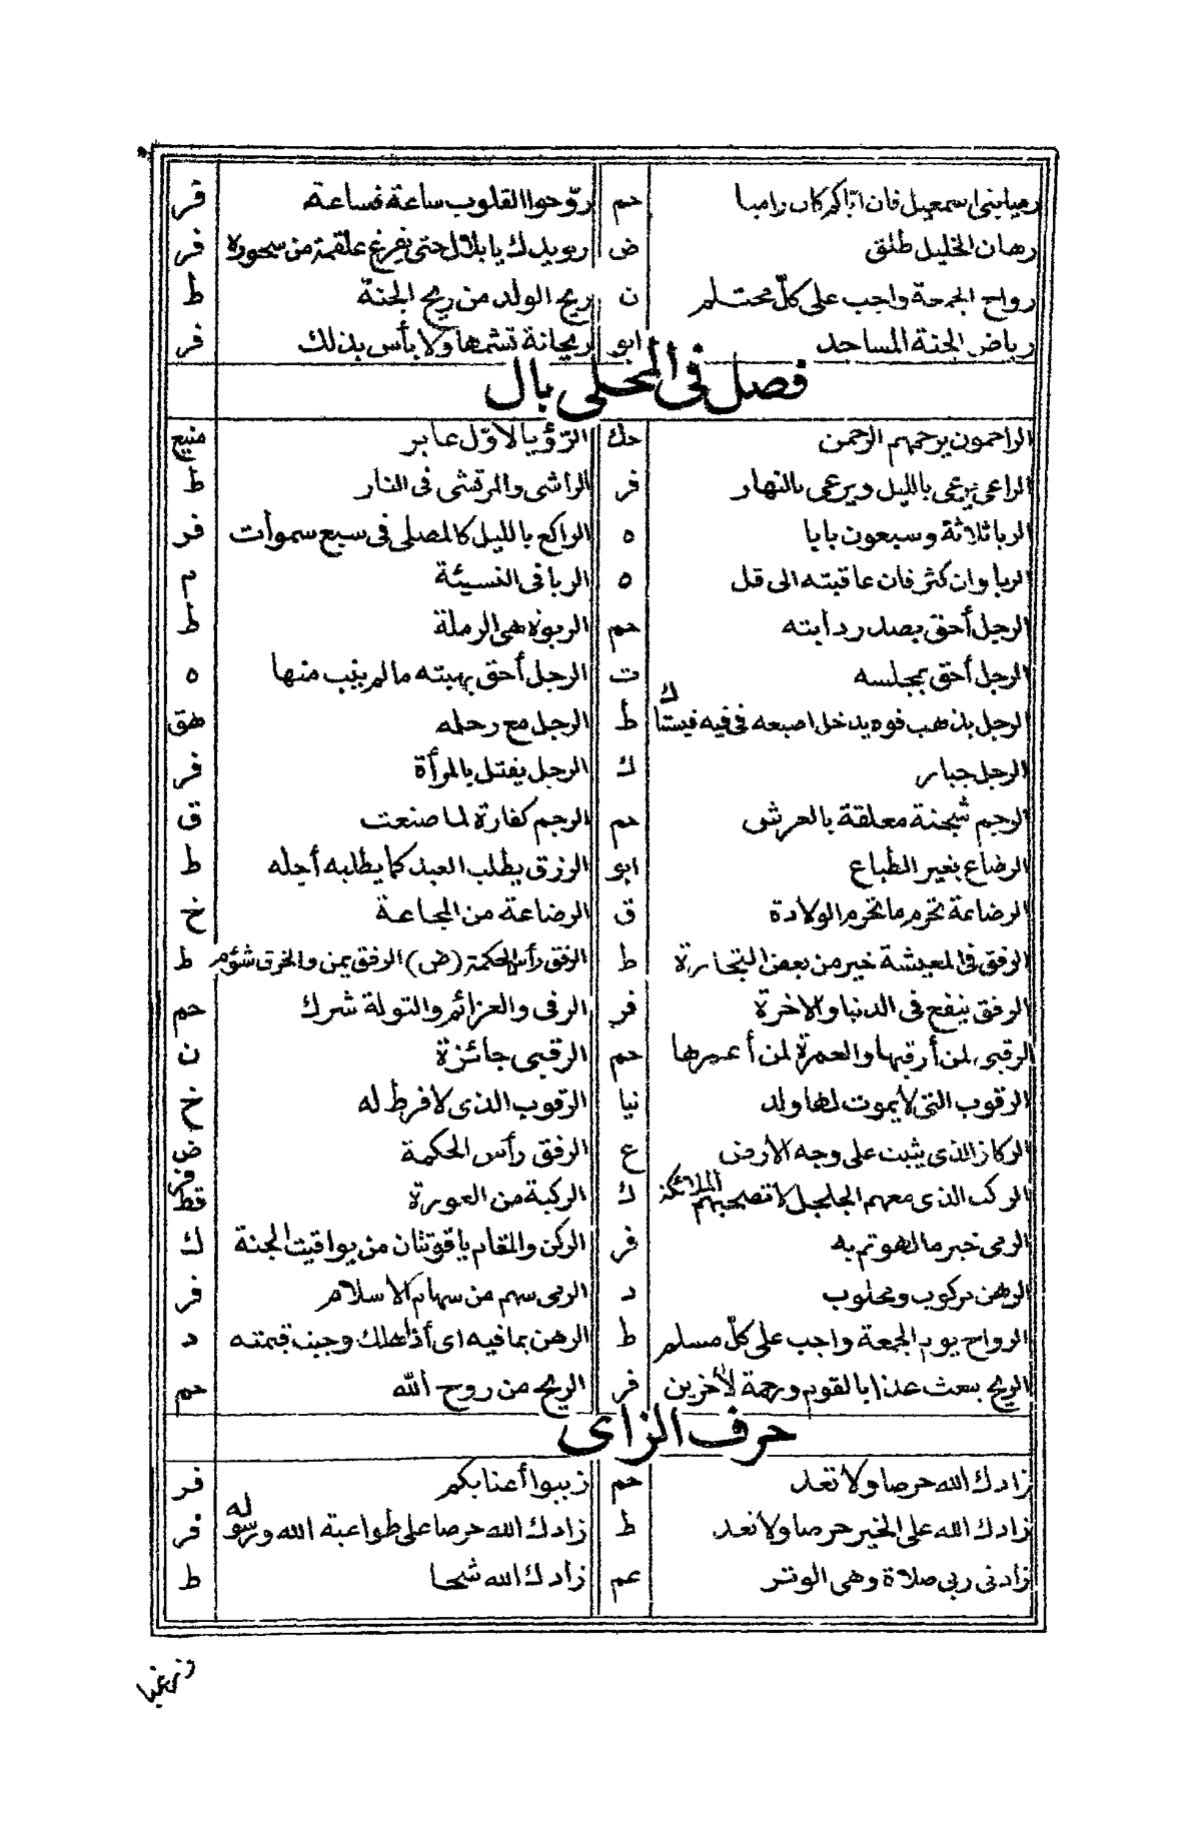 رميا بنى اسمعيل فان اباكم كان راميا حم روّحوا القلوب ساعة فساعة فر
رهان الخليل طلق ض رويدك يا بلال حتى يفرغ علقمة من سحوره فر
رواح الجمعة واجب على كلّ محتلم ن ريح الولد من ريح الجنة ط
رياض الجنة المساجد ابو ريحانة تشمها ولا بأس بذلك فر
فصل فى المحلى بال
الراحمون يرحمهم الرحمن حك الرؤيا لاوّل عابر منيع
الراعى يرعى بالليل ويرعى بالنهار فر الراشى والمرتشى فى النار ط
الربا ثلاثة وسبعون بابا ه الراكع بالليل كالمصلى فى سبع سموات فر
الربا وان كثر فان عاقبته الى قل ه الربا فى النسيئة م
الرجل أحق بصدر دابته حم الربوة هى الرملة ط
الرجل أحق بمجلسه ت الرجل أحق بهبته مالم يثب منها ه
الرجل يذهب فوه يدخل اصبعه فى فيه فيستاك ط الرجل مع رحله هق
الرجل جبار ك الرجل يفتل بالمرأة فر
الرحم شجنة معلقة بالعرش حم الرجم كفارة لما صنعت ق
الرضاع بغير الطباع ابو الرزق يطلب العبد كما يطلبه أجله ط
الرضاعة تحرم ما تحرم الولادة ق الرضاعة من المجاعة خ
الرفق فى المعيشة خير من بعض التجارة ط الرفق رأس الحكمة (ض) الرفق يمن والخرق شؤم ط
الرفق ينفع فى الدنيا والاخرة فر الرقى والعزائم والتولة شرك حم
الرقبى لمن أرقبها والعمرة لمن أعمرها حم الرقبى جائزة ن
الرقوب التى لا يموت لها ولد نيا الرقوب الذى لا فرط له خ
الركاز الذى يثبت على وجه الارض ع الرفق رأس الحكمة ض
الركب الذى معهم الجلجل لا تصحبهم الملائكة ك الركبة من العورة فر قط
الرمى خير ما لهوتم به فر الركن والمقام ياقوتتان من يواقيت الجنة ك
الرهن مركوب ومحلوب د الرمى سهم من سهام الاسلام فر
الرواح يوم الجمعة واجب على كلّ مسلم ط الرهن بما فيه اى أذا هلك وجبت قيمته د
الريح يبعث عذابا لقوم ورحمة لآخرين فر الريح من روح الله حم
حرف الزاى
زادك الله حرصا ولا تعد حم زببوا أعنابكم فر
زادك الله على الخير حرصا ولا تعد ط زادك الله حرصا على طواعية الله ورسوله فر
زادنى ربى صلاة وهى الوتر عم زادك الله شحا ط